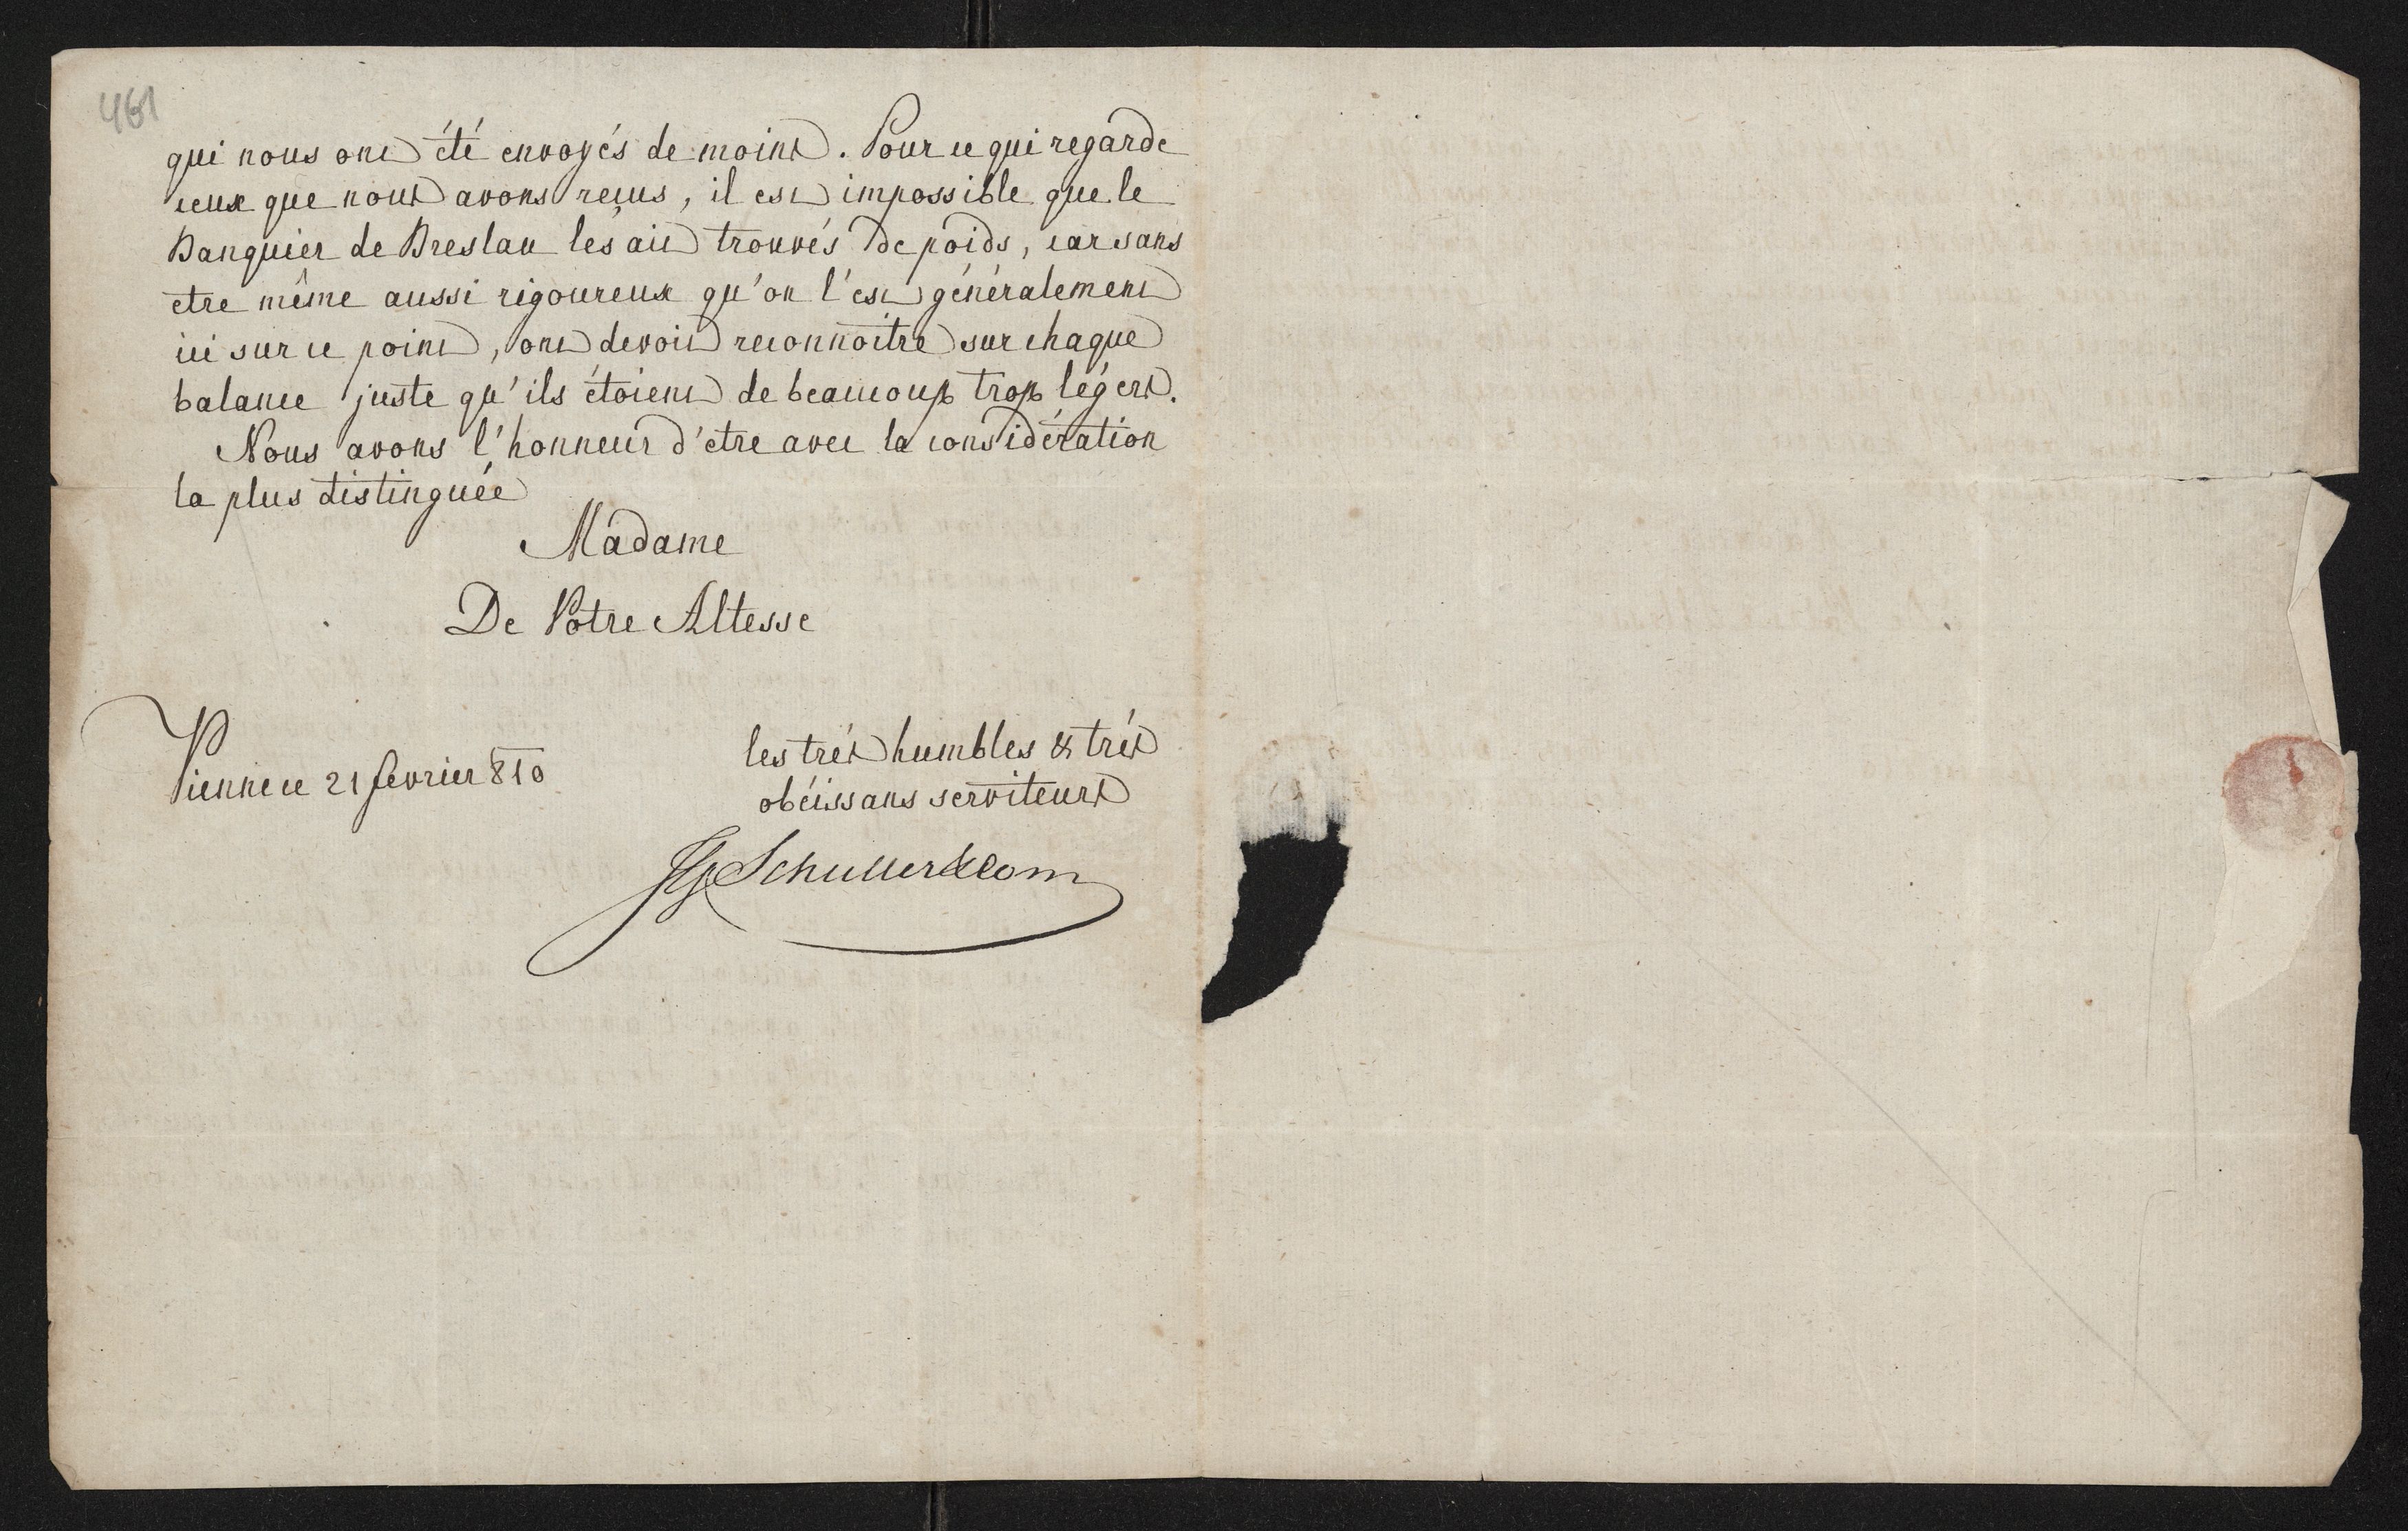 461
qui nous ont été envoyés de moins. Pour ce qui regarde
ceux que nous avons reçus, il est impossible que le
Banquier de Breslau les ait trouvés de poids, car sans
etre même aussi rigoureux qu'on l'est généralement
ici sur ce point, ont devoit reconnoître sur chaque
balance juste qu'ils étoient de beaucoup trop légers.
Nous avons l'honneur d'etre avec la considération
la plus distinguée
Madame
De Votre Altesse
les trés humbles & trés
obéissans serviteurs
Vienne ce 21 fevrier 810
Schuller & Com